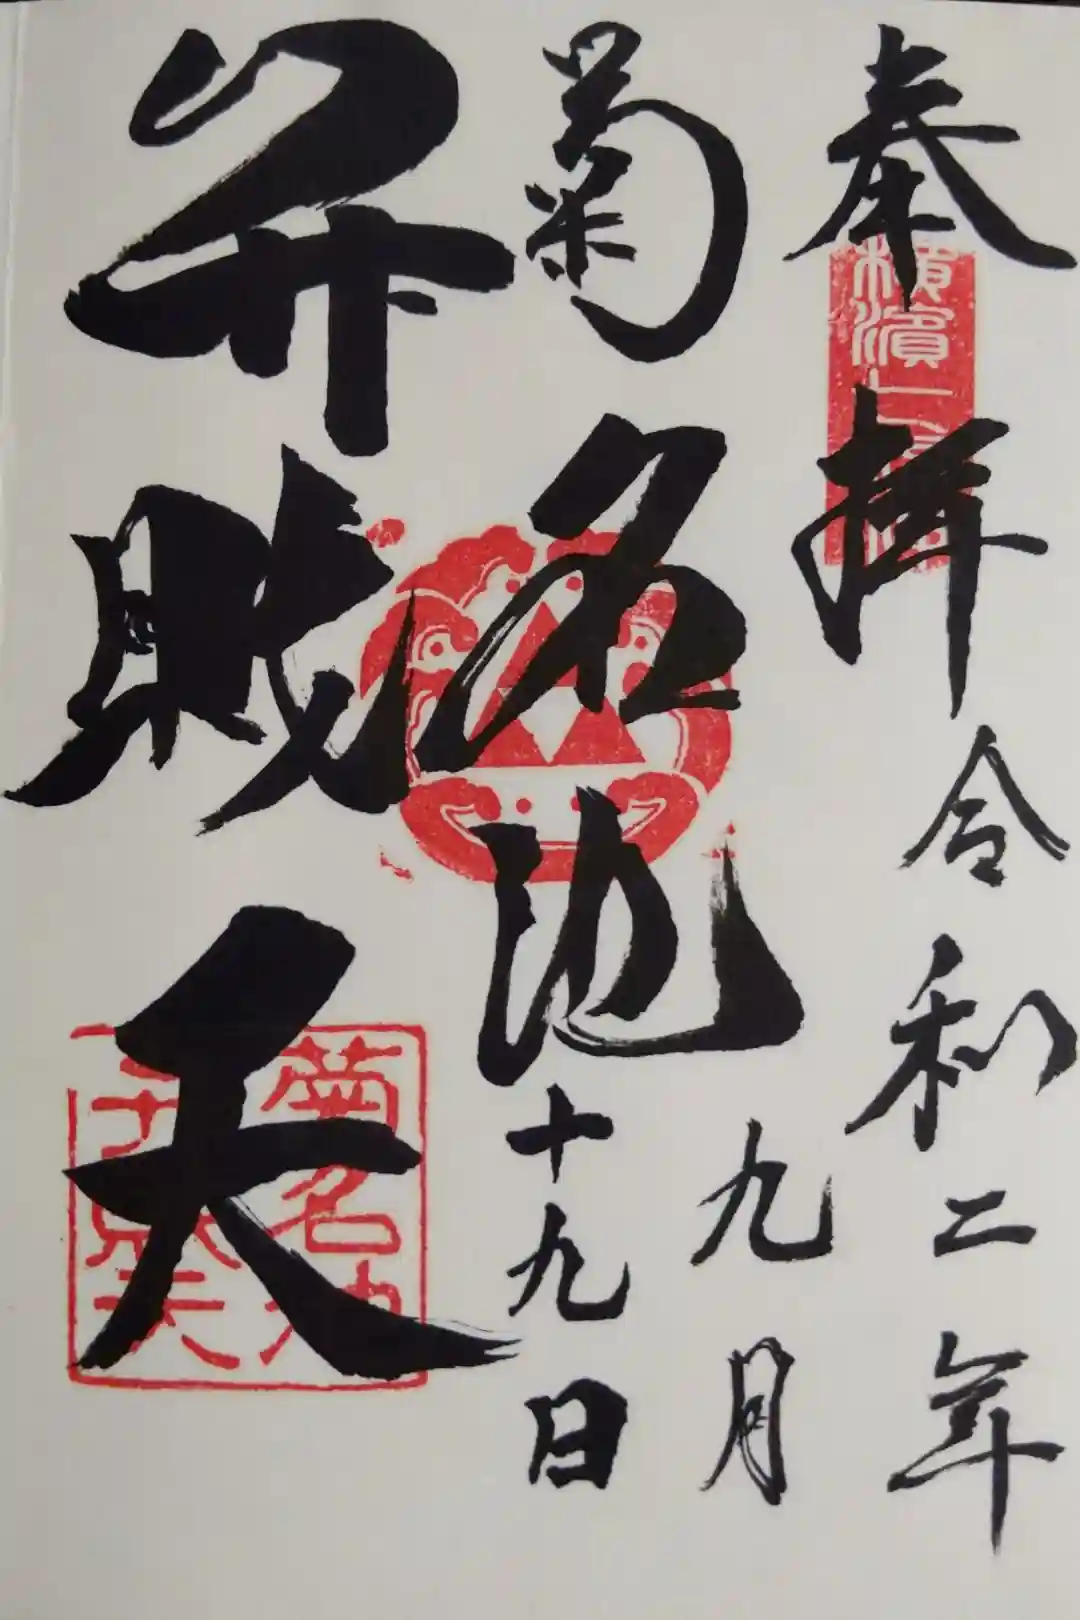 奉拝
令和二年
九月
十九日
菊名池
弁財天
横濱
菊名池
弁財天